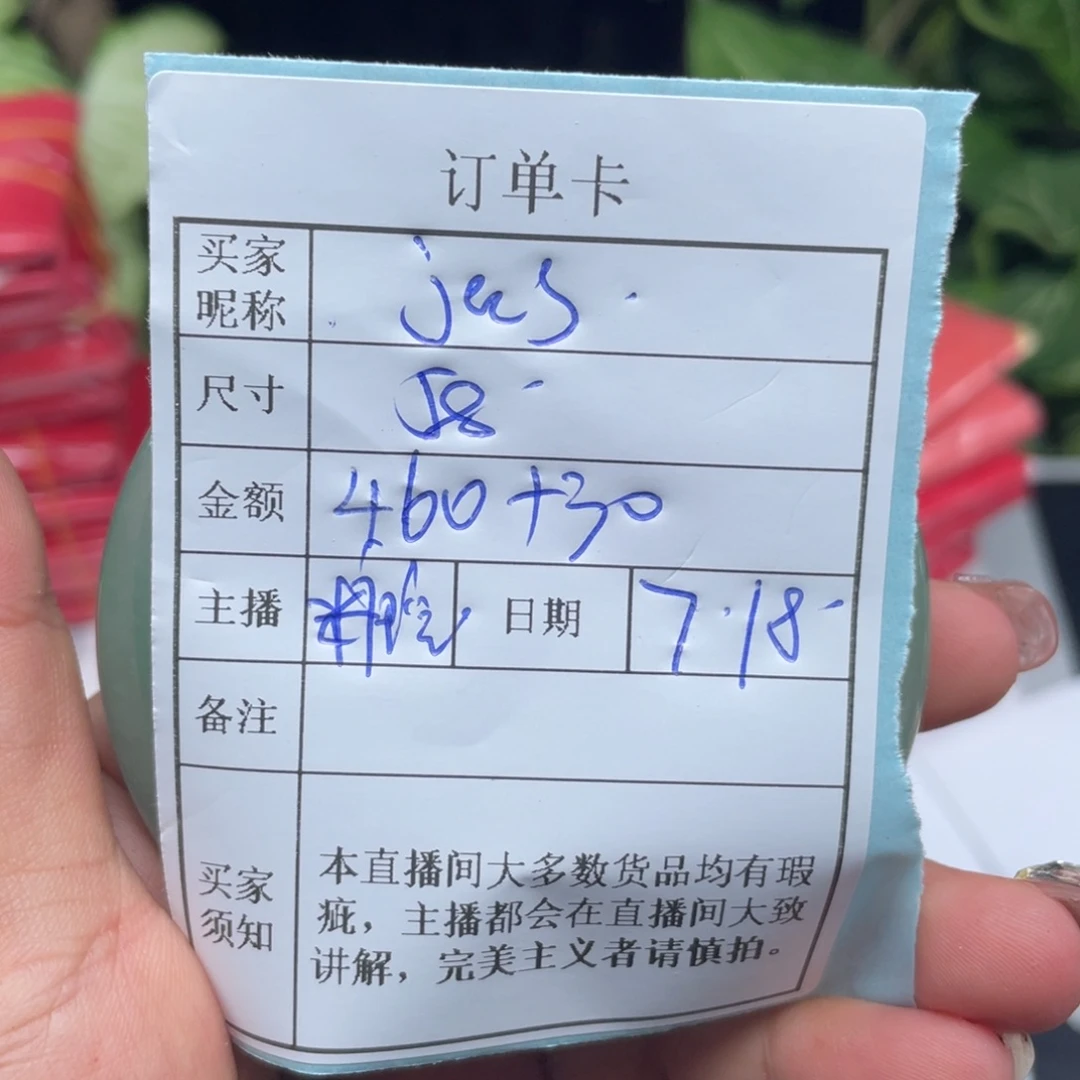 订单卡
买家
昵称
jas.
尺寸
58
金额
460+30
主播
日期
7.18
备注
买家
须知
本直播间大多数货品均有瑕
疵，主播都会在直播间大致
讲解，完美主义者请慎拍。